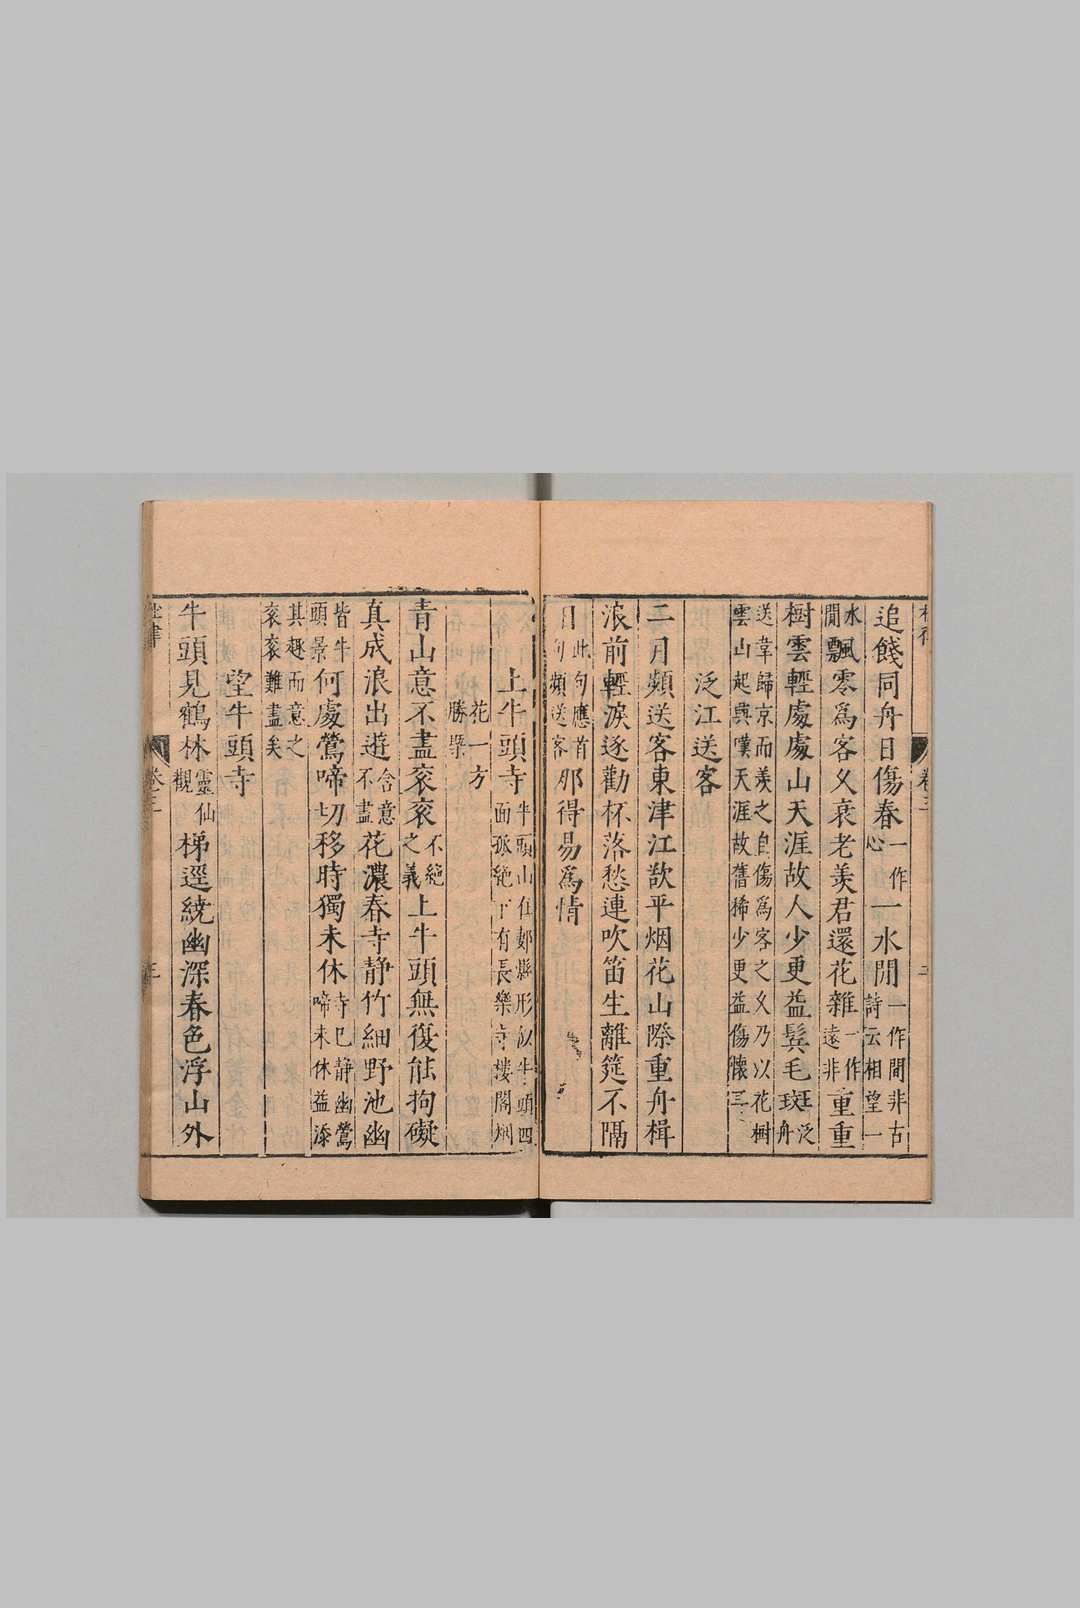 追餞同舟日傷春一作心一水間一作間非古詩云相望一
水間飄零為客久衰老羨君還花雜一作遠非重重
樹雲輕處處山天涯故人少更益鬂毛斑王泛舟
送韋歸京而羨之自傷為客之久乃以花樹雲山起興嘆天涯故舊稀少更益傷懷
泛江送客
二月頻送客東津江欲平烟花山際重舟楫
浪前輕淚逐勸杯落愁連吹笛生離筵不隔
日此句應首句頻送客那得易為情
上牛頭寺牛頭山在郪縣形似牛頭四面孤絶下有長樂寺樓閣烟
花一方勝槩
青山意不盡衮衮不絶之義上牛頭無復能拘礙
真成浪出遊含意不盡花濃春寺靜竹細野池幽
皆牛頭景何處鶯啼切移時獨未休寺已靜幽鶯啼未休益添
其趣而意之衮衮難盡矣
望牛頭寺
牛頭見鶴林靈仙觀梯逕繞幽深春色浮山外
杜律
卷三
三